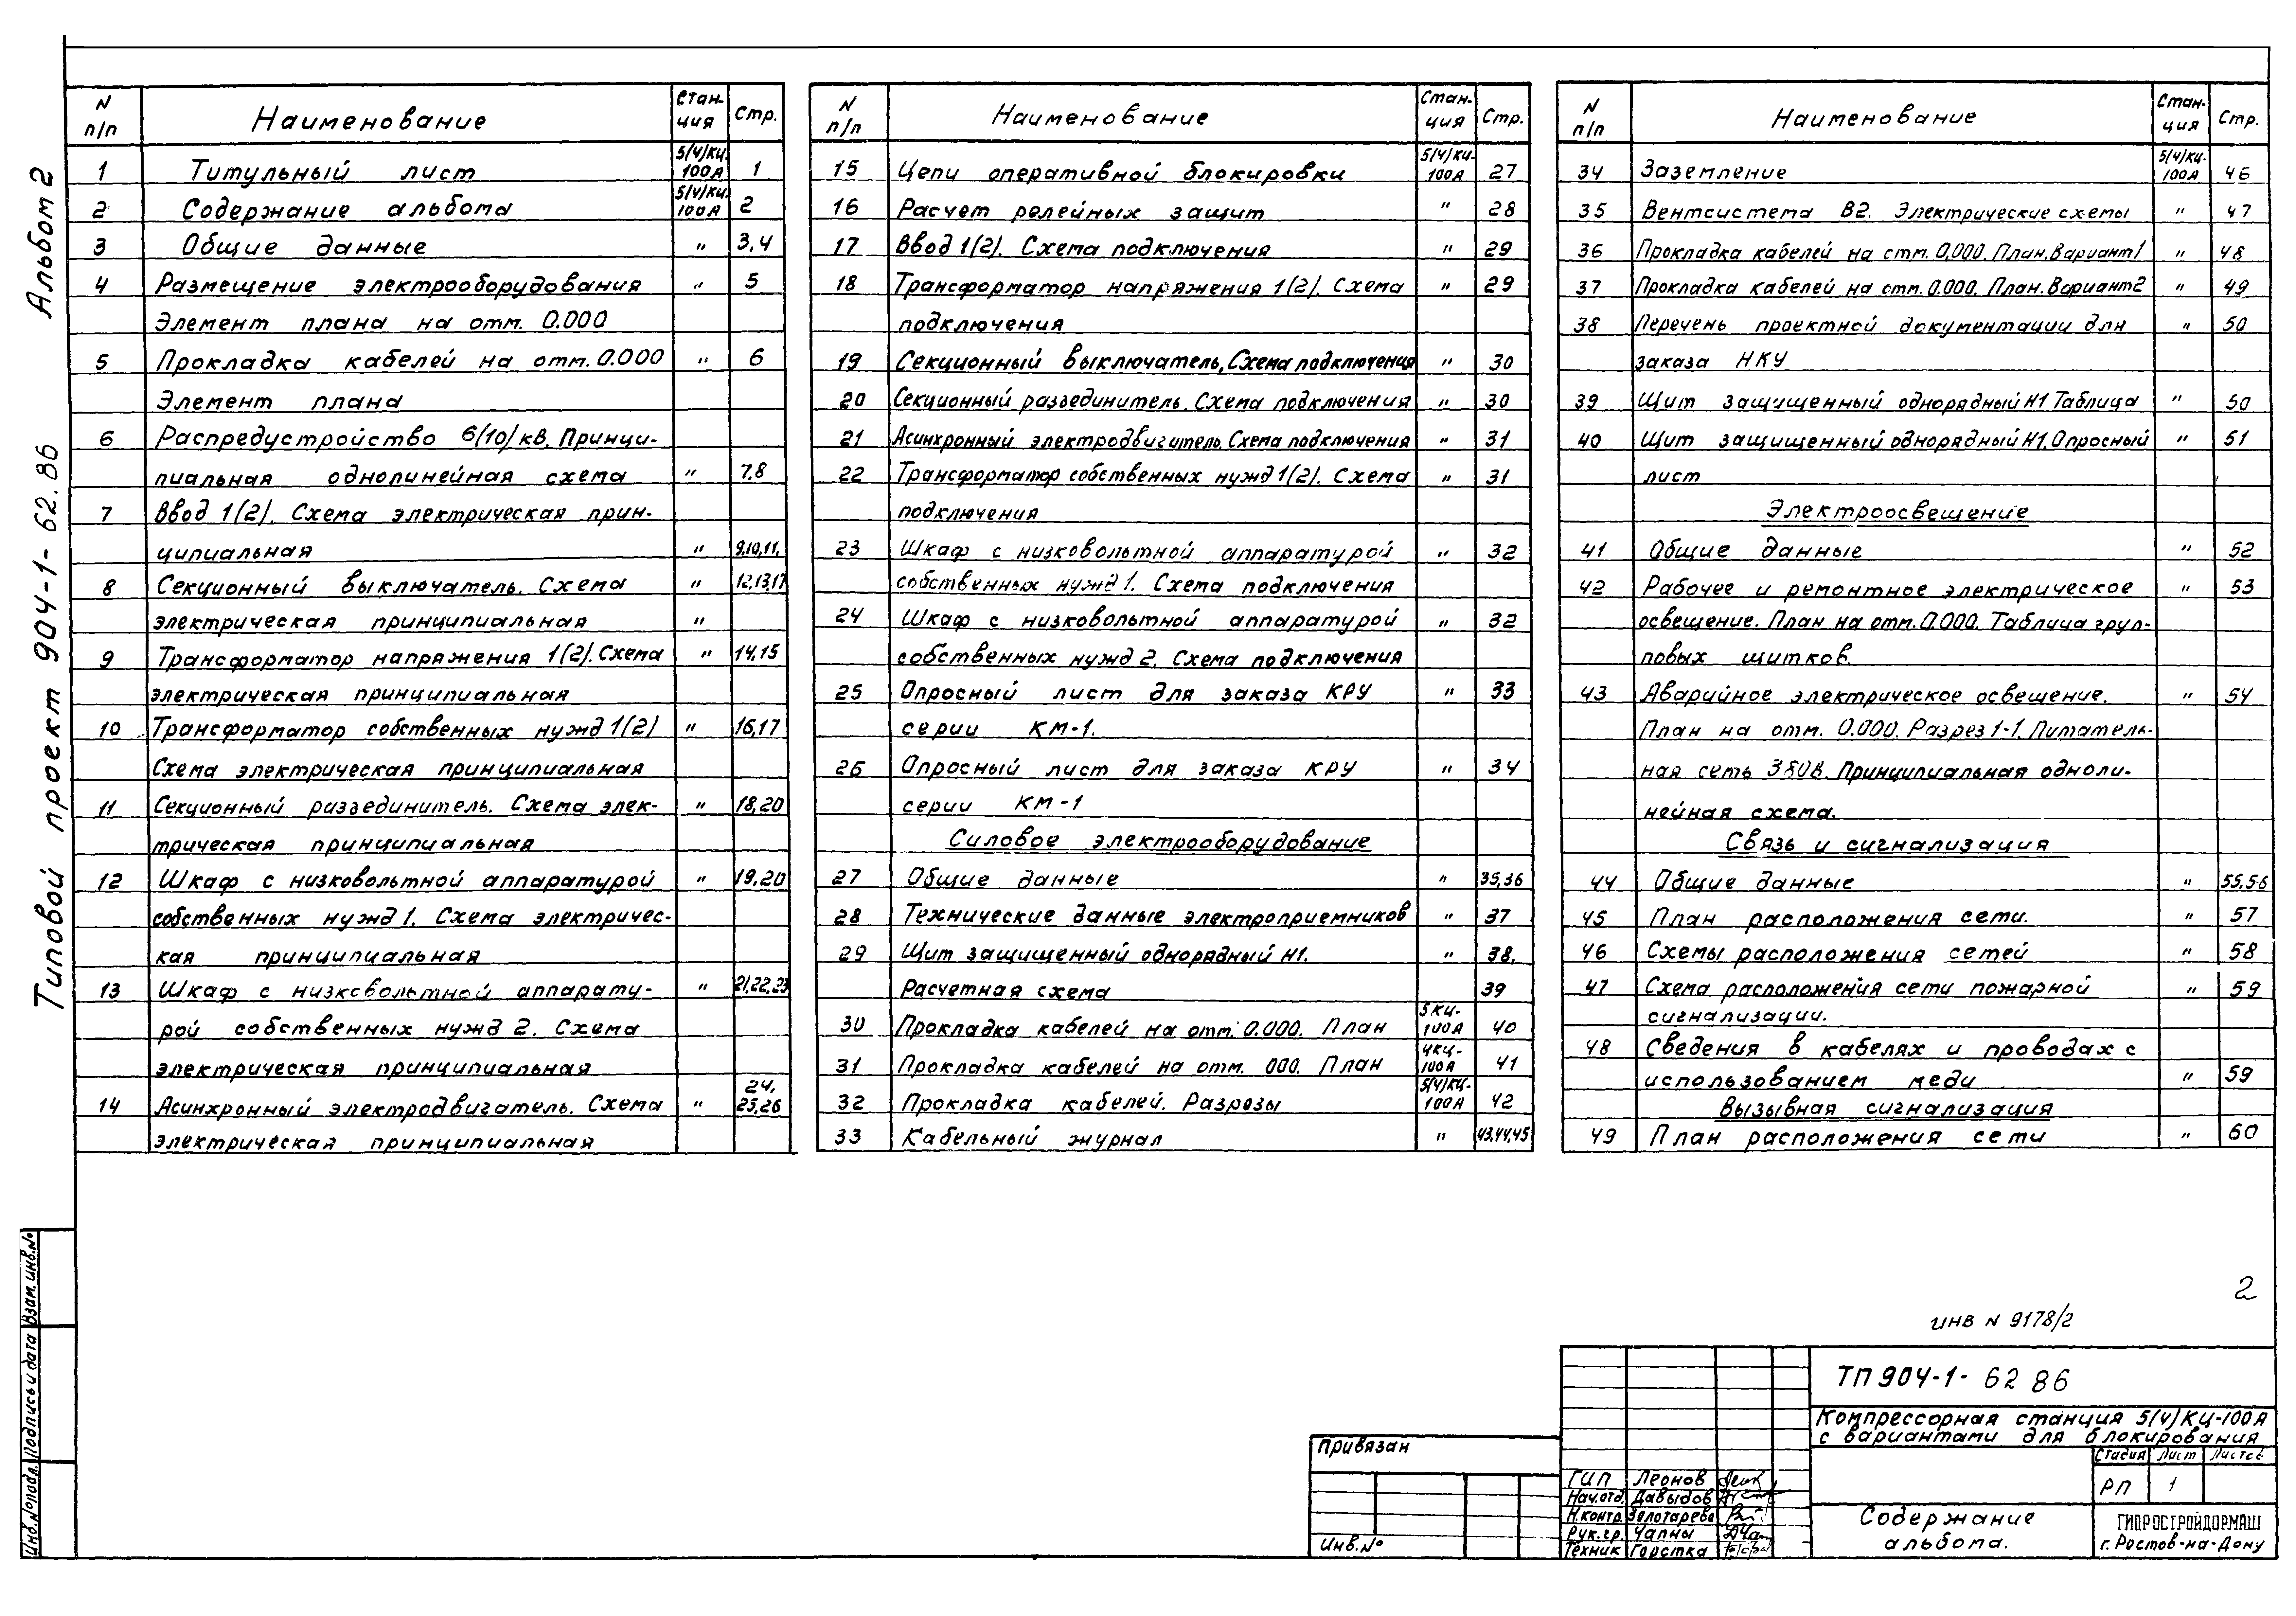 Альбом 2
Типовой проект 904-1-62.86
N п/п Наименование Стан-ция Стр.
1 Титульный лист 5(4)КЦ-100А 1
2 Содержание альбома 5(4)КЦ-100А 2
3 Общие данные " 3,4
4 Размещение электрооборудования " 5
Элемент плана на отм. 0.000
5 Прокладка кабелей на отм. 0.000 " 6
Элемент плана
6 Распредустройство 6(10)кВ. Принци-
пиальная однолинейная схема " 7,8
7 Ввод 1(2). Схема электрическая прин-
ципиальная " 9,10,11,
8 Секционный выключатель. Схема " 12,13,17
электрическая принципиальная "
9 Трансформатор напряжения 1(2). Схема " 14,15
электрическая принципиальная
10 Трансформатор собственных нужд 1(2) " 16,17
Схема электрическая принципиальная
11 Секционный разъединитель. Схема элек- " 18,20
трическая принципиальная
12 Шкаф с низковольтной аппаратурой " 19,20
собственных нужд 1. Схема электричес-
кая принципиальная
13 Шкаф с низковольтной аппарату- " 21,22,23
рой собственных нужд 2. Схема
электрическая принципиальная
14 Асинхронный электродвигатель. Схема " 24, 25,26
электрическая принципиальная
N п/п Наименование Стан-ция Стр.
15 Цепи оперативной блокировки 5(4)КЦ-100А 27
16 Расчет релейных защит " 28
17 Ввод 1(2). Схема подключения " 29
18 Трансформатор напряжения 1(2). Схема " 29
подключения
19 Секционный выключатель, Схема подключения " 30
20 Секционный разъединитель. Схема подключения " 30
21 Асинхронный электродвигатель. Схема подключения " 31
22 Трансформатор собственных нужд 1(2). Схема " 31
подключения
23 Шкаф с низковольтной аппаратурой " 32
собственных нужд 1. Схема подключения
24 Шкаф с низковольтной аппаратурой " 32
собственных нужд 2. Схема подключения
25 Опросный лист для заказа КРУ " 33
серии КМ-1.
26 Опросный лист для заказа КРУ " 34
серии КМ-1
Силовое электрооборудование
27 Общие данные " 35,36
28 Технические данные электроприемников " 37
29 Щит защищенный однорядный Н1. " 38.
Расчетная схема 39
30 Прокладка кабелей на отм. 0.000. План 5КЦ-100А 40
31 Прокладка кабелей на отм. 000. План 4КЦ-100А 41
32 Прокладка кабелей. Разрезы 5(4)КЦ-100А 42
33 Кабельный журнал " 43,44,45
N п/п Наименование Стан-ция Стр.
34 Заземление 5(4)КЦ-100А 46
35 Вентсистема В2. Электрические схемы " 47
36 Прокладка кабелей на отм. 0.000. План. Вариант 1 " 48
37 Прокладка кабелей на отм. 0.000. План. Вариант 2 " 49
38 Перечень проектной документации для " 50
заказа НКУ
39 Щит защищенный однорядный Н1 Таблица " 50
40 Щит защищенный однорядный Н1. Опросный " 51
лист
Электроосвещение
41 Общие данные " 52
42 Рабочее и ремонтное электрическое " 53
освещение. План на отм. 0.000. Таблица груп-
повых щитков.
43 Аварийное электрическое освещение. " 54
План на отм. 0.000. Разрез 1-1. Питатель-
ная сеть 380В. Принципиальная одноли-
нейная схема.
Связь и сигнализация
44 Общие данные " 55,56
45 План расположения сети. " 57
46 Схемы расположения сетей " 58
47 Схема расположения сети пожарной " 59
сигнализации.
48 Сведения в кабелях и проводах с
использованием меди " 59
Вызывная сигнализация
49 План расположения сети " 60
2
инв N 9178/2
ТП 904-1-62 86
Компрессорная станция 5(4)КЦ-100А
с вариантами для блокирования
Стадия Лист Листов
РП 1
Содержание
альбома.
ГИПРОСТРОЙДОРМАШ
г. Ростов-на-Дону
ГИП Леонов
Нач.отд. Давыдов
Н.контр. Золотарева
Рук.гр. Чапны
Техник Горстка
Привязан
Инв.№
Взам.инв.№
Подпись и дата
Инв.№подл.